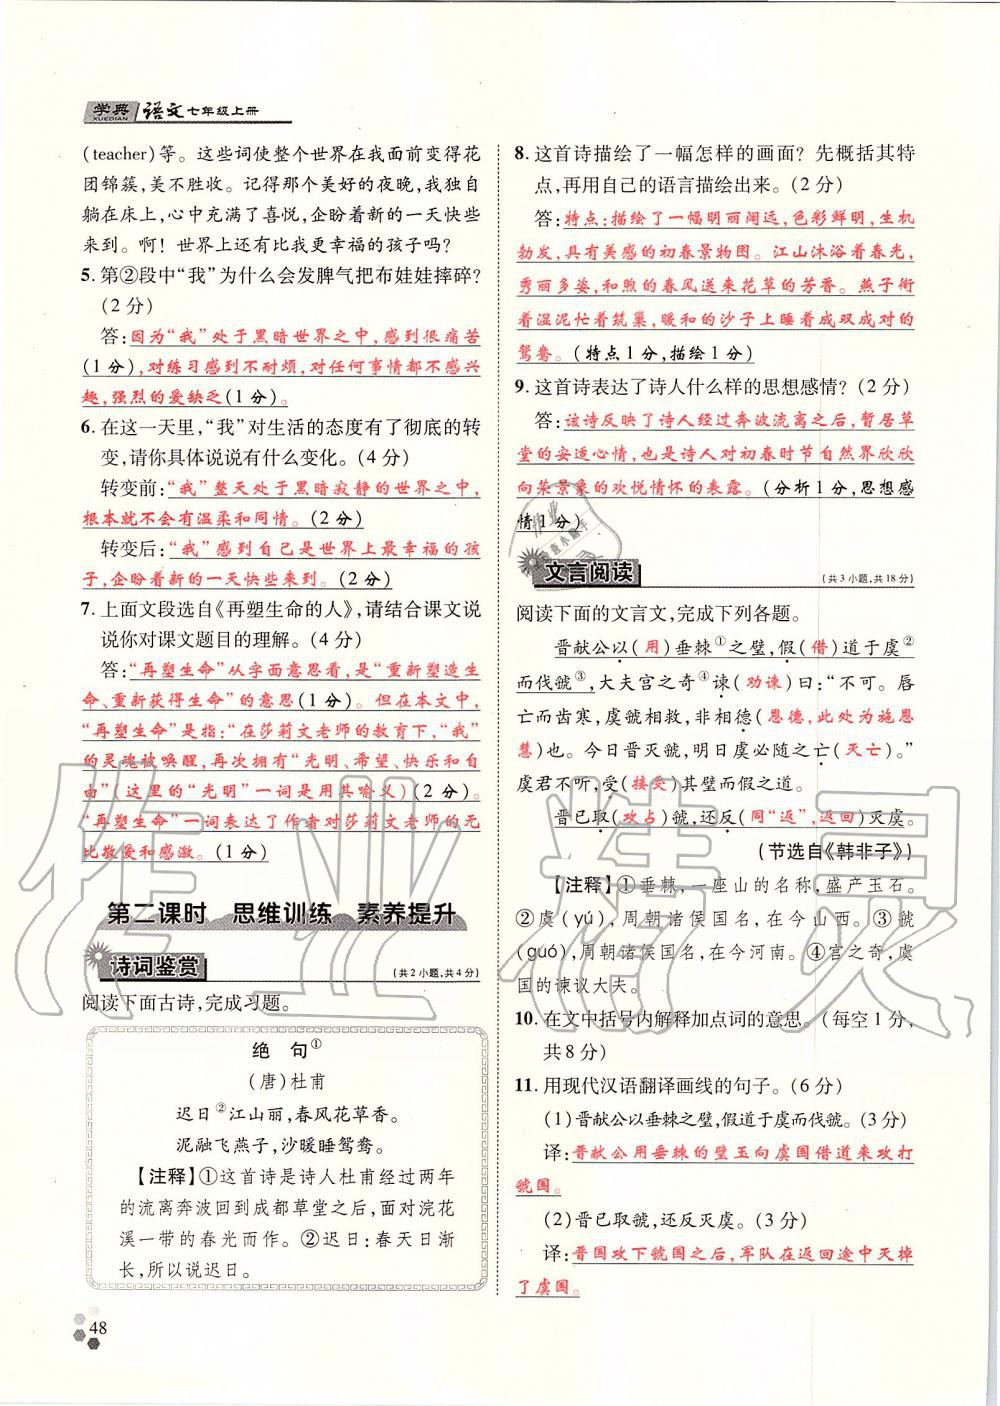 学典 语文七年级上册
XUEDIAN
(teacher)等。这些词使整个世界在我面前变得花
团锦簇,美不胜收。记得那个美好的夜晚,我独自
躺在床上,心中充满了喜悦,企盼着新的一天快些
来到。啊!世界上还有比我更幸福的孩子吗?
5. 第②段中“我”为什么会发脾气把布娃娃摔碎?
(2分)
答:因为“我”处于黑暗世界之中,感到很痛苦
(1分),对练习感到不耐烦,对任何事情都不感兴
趣,强烈的爱缺乏(1分)。
6. 在这一天里,“我”对生活的态度有了彻底的转
变,请你具体说说有什么变化。(4分)
转变前:“我”整天处于黑暗寂静的世界之中,
根本就不会有温柔和同情。(2分)
转变后:“我”感到自己是世界上最幸福的孩
子,企盼着新的一天快些来到。(2分)
7. 上面文段选自《再塑生命的人》,请结合课文说
说你对课文题目的理解。(4分)
答:“再塑生命”从字面意思看,是“重新塑造生
命、重新获得生命”的意思(1分)。但在本文中,
“再塑生命”是指:“在莎莉文老师的教育下,“我”
的灵魂被唤醒,再次拥有“光明、希望、快乐和自
由”(这里的“光明”一词是用其喻义)(2分)。
“再塑生命”一词表达了作者对莎莉文老师的无
比敬爱和感激。(1分)
第二课时 思维训练 素养提升
诗词鉴赏 (共2小题,共4分)
阅读下面古诗,完成习题。
绝 句①
(唐)杜甫
迟日②江山丽,春风花草香。
泥融飞燕子,沙暖睡鸳鸯。
【注释】①这首诗是诗人杜甫经过两年
的流离奔波回到成都草堂之后,面对浣花
溪一带的春光而作。②迟日:春天日渐
长,所以说迟日。
48
8. 这首诗描绘了一幅怎样的画面?先概括其特
点,再用自己的语言描绘出来。(2分)
答:特点:描绘了一幅明丽阔远,色彩鲜明,生机
勃发,具有美感的初春景物图。江山沐浴着春光,
秀丽多姿,和煦的春风送来花草的芳香。燕子衔
着湿泥忙着筑巢,暖和的沙子上睡着成双成对的
鸳鸯。(特点1分,描绘1分)
9. 这首诗表达了诗人什么样的思想感情?(2分)
答:该诗反映了诗人经过奔波流离之后,暂居草
堂的安适心情,也是诗人对初春时节自然界欣欣
向荣景象的欢悦情怀的表露。(分析1分,思想感
情1分)
文言阅读 (共3小题,共18分)
阅读下面的文言文,完成下列各题。
晋献公以(用)垂棘①之璧,假(借)道于虞②
而伐虢③,大夫宫之奇④谏(劝谏)曰:“不可。唇
亡而齿寒,虞虢相救,非相德(恩德,此处为施恩
慧)也。今日晋灭虢,明日虞必随之亡(灭亡)。”
虞君不听,受(接受)其璧而假之道。
晋已取(攻占)虢,还反(同“返”,返回)灭虞。
(节选自《韩非子》)
【注释】①垂棘,一座山的名称,盛产玉石。
②虞(yú),周朝诸侯国名,在今山西。③虢
(guó),周朝诸侯国名,在今河南。④宫之奇,虞
国的谏议大夫。
10. 在文中括号内解释加点词的意思。(每空1分,
共8分)
11. 用现代汉语翻译画线的句子。(6分)
(1)晋献公以垂棘之璧,假道于虞而伐虢。(3分)
译:晋献公用垂棘的璧玉向虞国借道来攻打
虢国。
(2)晋已取虢,还反灭虞。(3分)
译:晋国攻下虢国之后,军队在返回途中灭掉
了虞国。
作业精灵